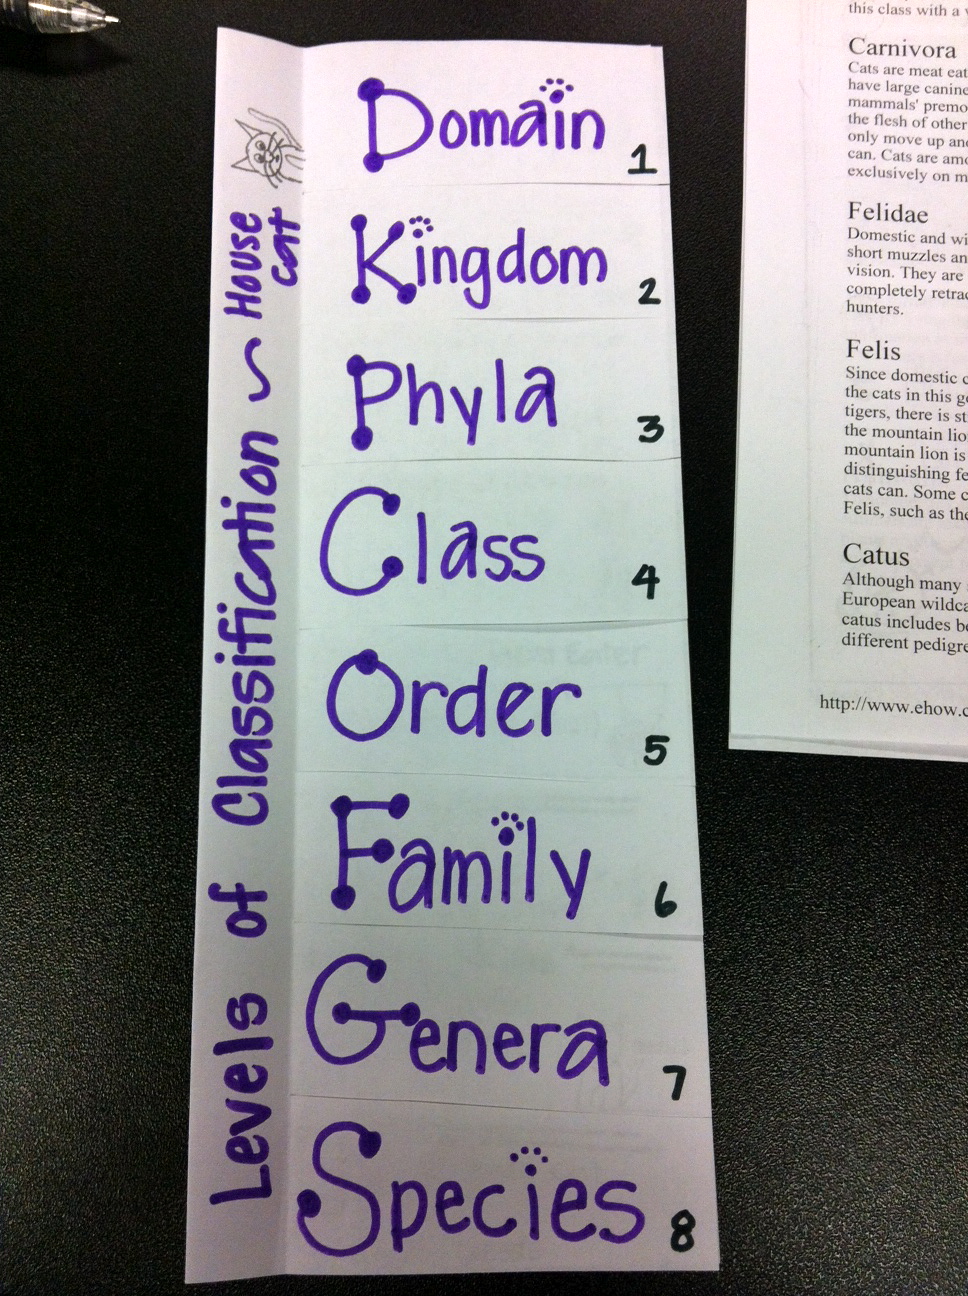 Levels of Classification ~ House
cat
Domain
1
Kingdom
2
Phyla
3
Class
4
Order
5
Family
6
Genera
7
Species
8
this class with a
Carnivora
Cats are meat eat
have large canine
mammals' premo
the flesh of other
only move up and
can. Cats are amo
exclusively on m
Felidae
Domestic and wi
short muzzles an
vision. They are
completely retrac
hunters.
Felis
Since domestic c
the cats in this ge
tigers, there is st
the mountain lio
mountain lion is
distinguishing fe
cats can. Some c
Felis, such as the
Catus
Although many
European wildca
catus includes be
different pedigre
http://www.ehow.c